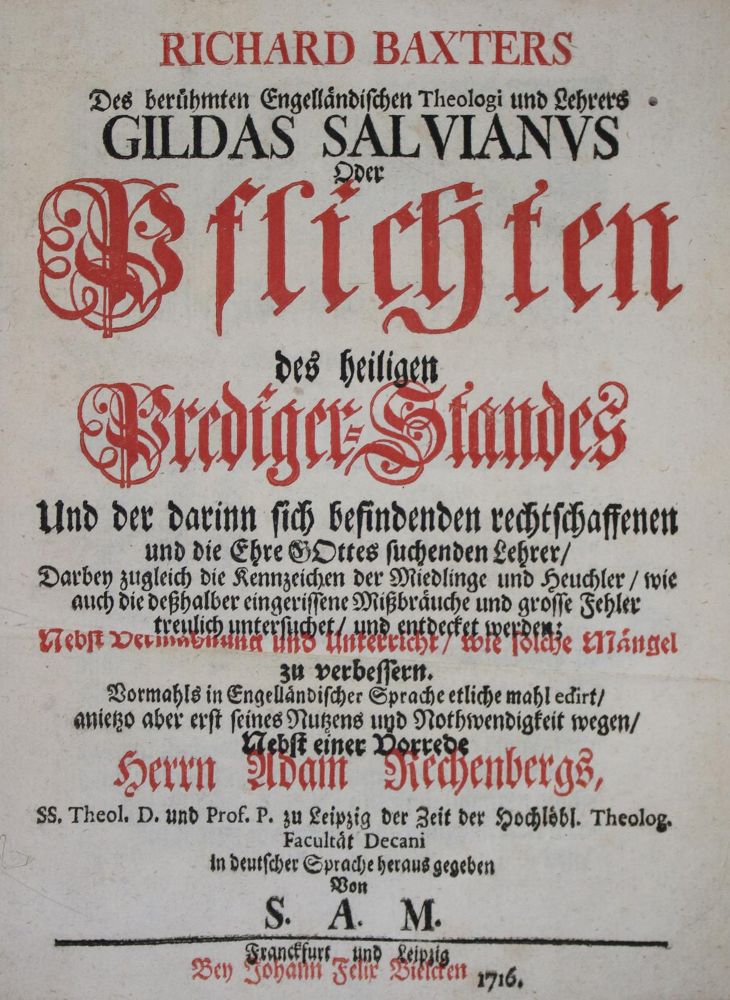 RICHARD BAXTERS
Des berühmten Engelländischen Theologi und Lehrers
GILDAS SALVIANVS
Oder
Pflichten
des heiligen
Prediger-Standes
Und der darinn sich befindenden rechtschaffenen
und die Ehre GOttes suchenden Lehrer/
Darbey zugleich die Kennzeichen der Miedlinge und Heuchler/ wie
auch die deßhalber eingerissene Mißbräuche und grosse Fehler
treulich untersuchet/ und entdecket werden;
Nebst Vermahnung und Unterricht/ wie solche Mängel
zu verbessern.
Vormahls in Engelländischer Sprache etliche mahl edirt/
anietzo aber erst seines Nutzens und Nothwendigkeit wegen/
Nebst einer Vorrede
Herrn Adam Rechenbergs,
SS. Theol. D. und Prof. P. zu Leipzig der Zeit der Hochlöbl. Theolog.
Facultät Decani
in deutscher Sprache heraus gegeben
Von
S. A. M.
Franckfurt und Leipzig
Bey Johann Felix Bielcken 1716.